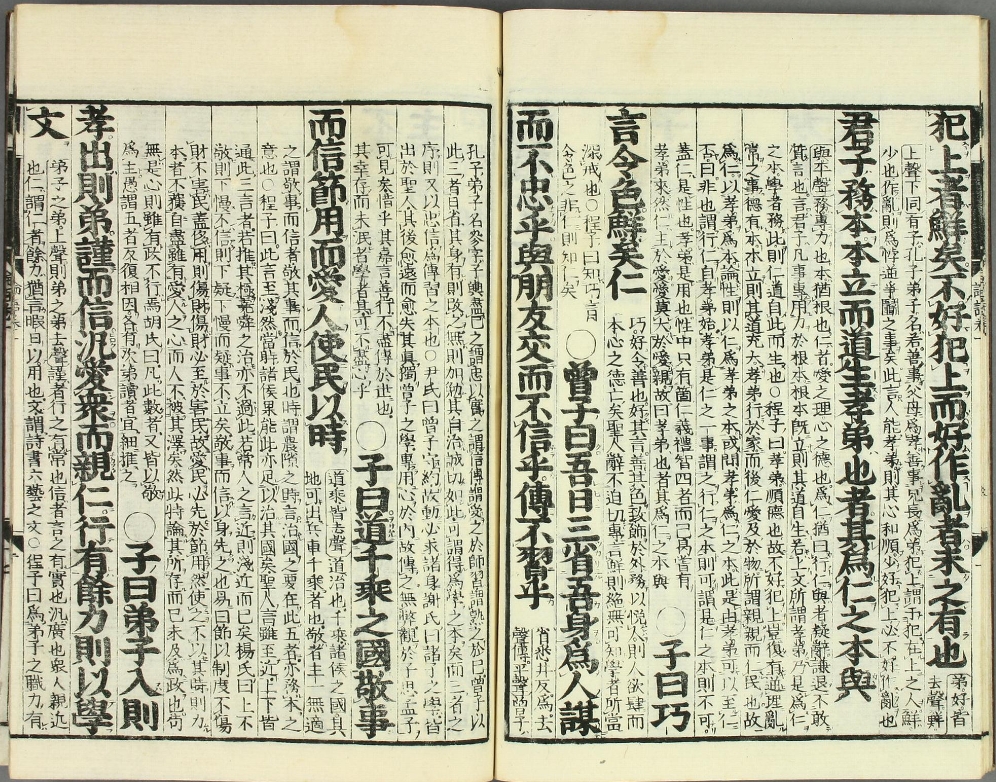 犯上者鮮矣不好犯上而好作亂者未之有也
弟好皆
去聲鮮
上聲下同有子孔子弟子名若善事父母爲孝善事兄長爲弟犯上謂干犯在上之人鮮
少也作亂則爲悖逆爭鬭之事矣此言人能孝弟則其心和順少好犯上必不好作亂也
君子務本本立而道生孝弟也者其爲仁之本與
與平聲務專力也本猶根也仁者愛之理心之德也爲仁猶曰行仁與者疑辭謙退不敢
質言也言君子凡事專用力於根本根本既立則其道自生若上文所謂孝弟乃是爲仁
之本學者務此則仁道自此而生也○程子曰孝弟順德也故不好犯上豈復有逆理亂
常之事德有本本立則其道充大孝弟行於家而後仁愛及於物所謂親親而仁民也故
爲仁以孝弟爲本論性則以仁爲孝弟之本或問孝弟爲仁之本此是由孝弟可以至仁
否曰非也謂行仁自孝弟始孝弟是仁之一事謂之行仁之本則可謂是仁之本則不可
蓋仁是性也孝弟是用也性中只有箇仁義禮智四者而已曷嘗有
孝弟來然仁主於愛愛莫大於愛親故曰孝弟也者其爲仁之本與
○子曰巧
言令色鮮矣仁
巧好令善也好其言善其色致飾於外務以悅人則人欲肆而
本心之德亡矣聖人辭不迫切專言鮮則絶無可知學者所當
深戒也○程子曰知巧言
令色之非仁則知仁矣
○曾子曰吾日三省吾身爲人謀
而不忠乎與朋友交而不信乎傳不習乎
省悉井反爲去
聲傳平聲曾子
孔子弟子名參字子輿盡己之謂忠以實之謂信傳謂受之於師習謂熟之於己曾子以
此三者日省其身有則改之無則加勉其自治誠切如此可謂得爲學之本矣而三者之
序則又以忠信爲傳習之本也○尹氏曰曾子守約故動必求諸身謝氏曰諸子之學皆
出於聖人其後愈遠而愈失其眞獨曾子之學專用心於內故傳之無弊觀於子思孟子
可見矣惜乎其嘉言善行不盡傳於世也
其幸存而未泯者學者其可不盡心乎
○子曰道千乘之國敬事
而信節用而愛人使民以時
道乘皆去聲道治也千乘諸侯之國其
地可出兵車千乘者也敬者主一無適
之謂敬事而信者敬其事而信於民也時謂農隙之時言治國之要在此五者亦務本之
意也○程子曰此言至淺然當時諸侯果能此亦足以治其國矣聖人言雖至近上下皆
通此三言者若推其極堯舜之治亦不過此若常人之言近則淺近而已矣楊氏曰上不
敬則下慢不信則下疑下慢而疑事不立矣敬事而信以身先之也易曰節以制度不傷
財不害民蓋侈用則傷財傷財必至於害民故愛民必先於節用然使之不以其時則力
本者不獲自盡雖有愛人之心而人不被其澤矣然此特論其所存而已未及爲政也苟
無是心則雖有政不行焉胡氏曰凡此數者又皆以敬
爲主愚謂五者反復相因各有次第讀者宜細推之
○子曰弟子入則
孝出則弟謹而信汎愛衆而親仁行有餘力則以學
文
弟子之弟上聲則弟之弟去聲謹者行之有常也信者言之有實也汎廣也衆人親近
也仁謂仁者餘力猶言暇日以用也文謂詩書六藝之文○程子曰爲弟子之職力有